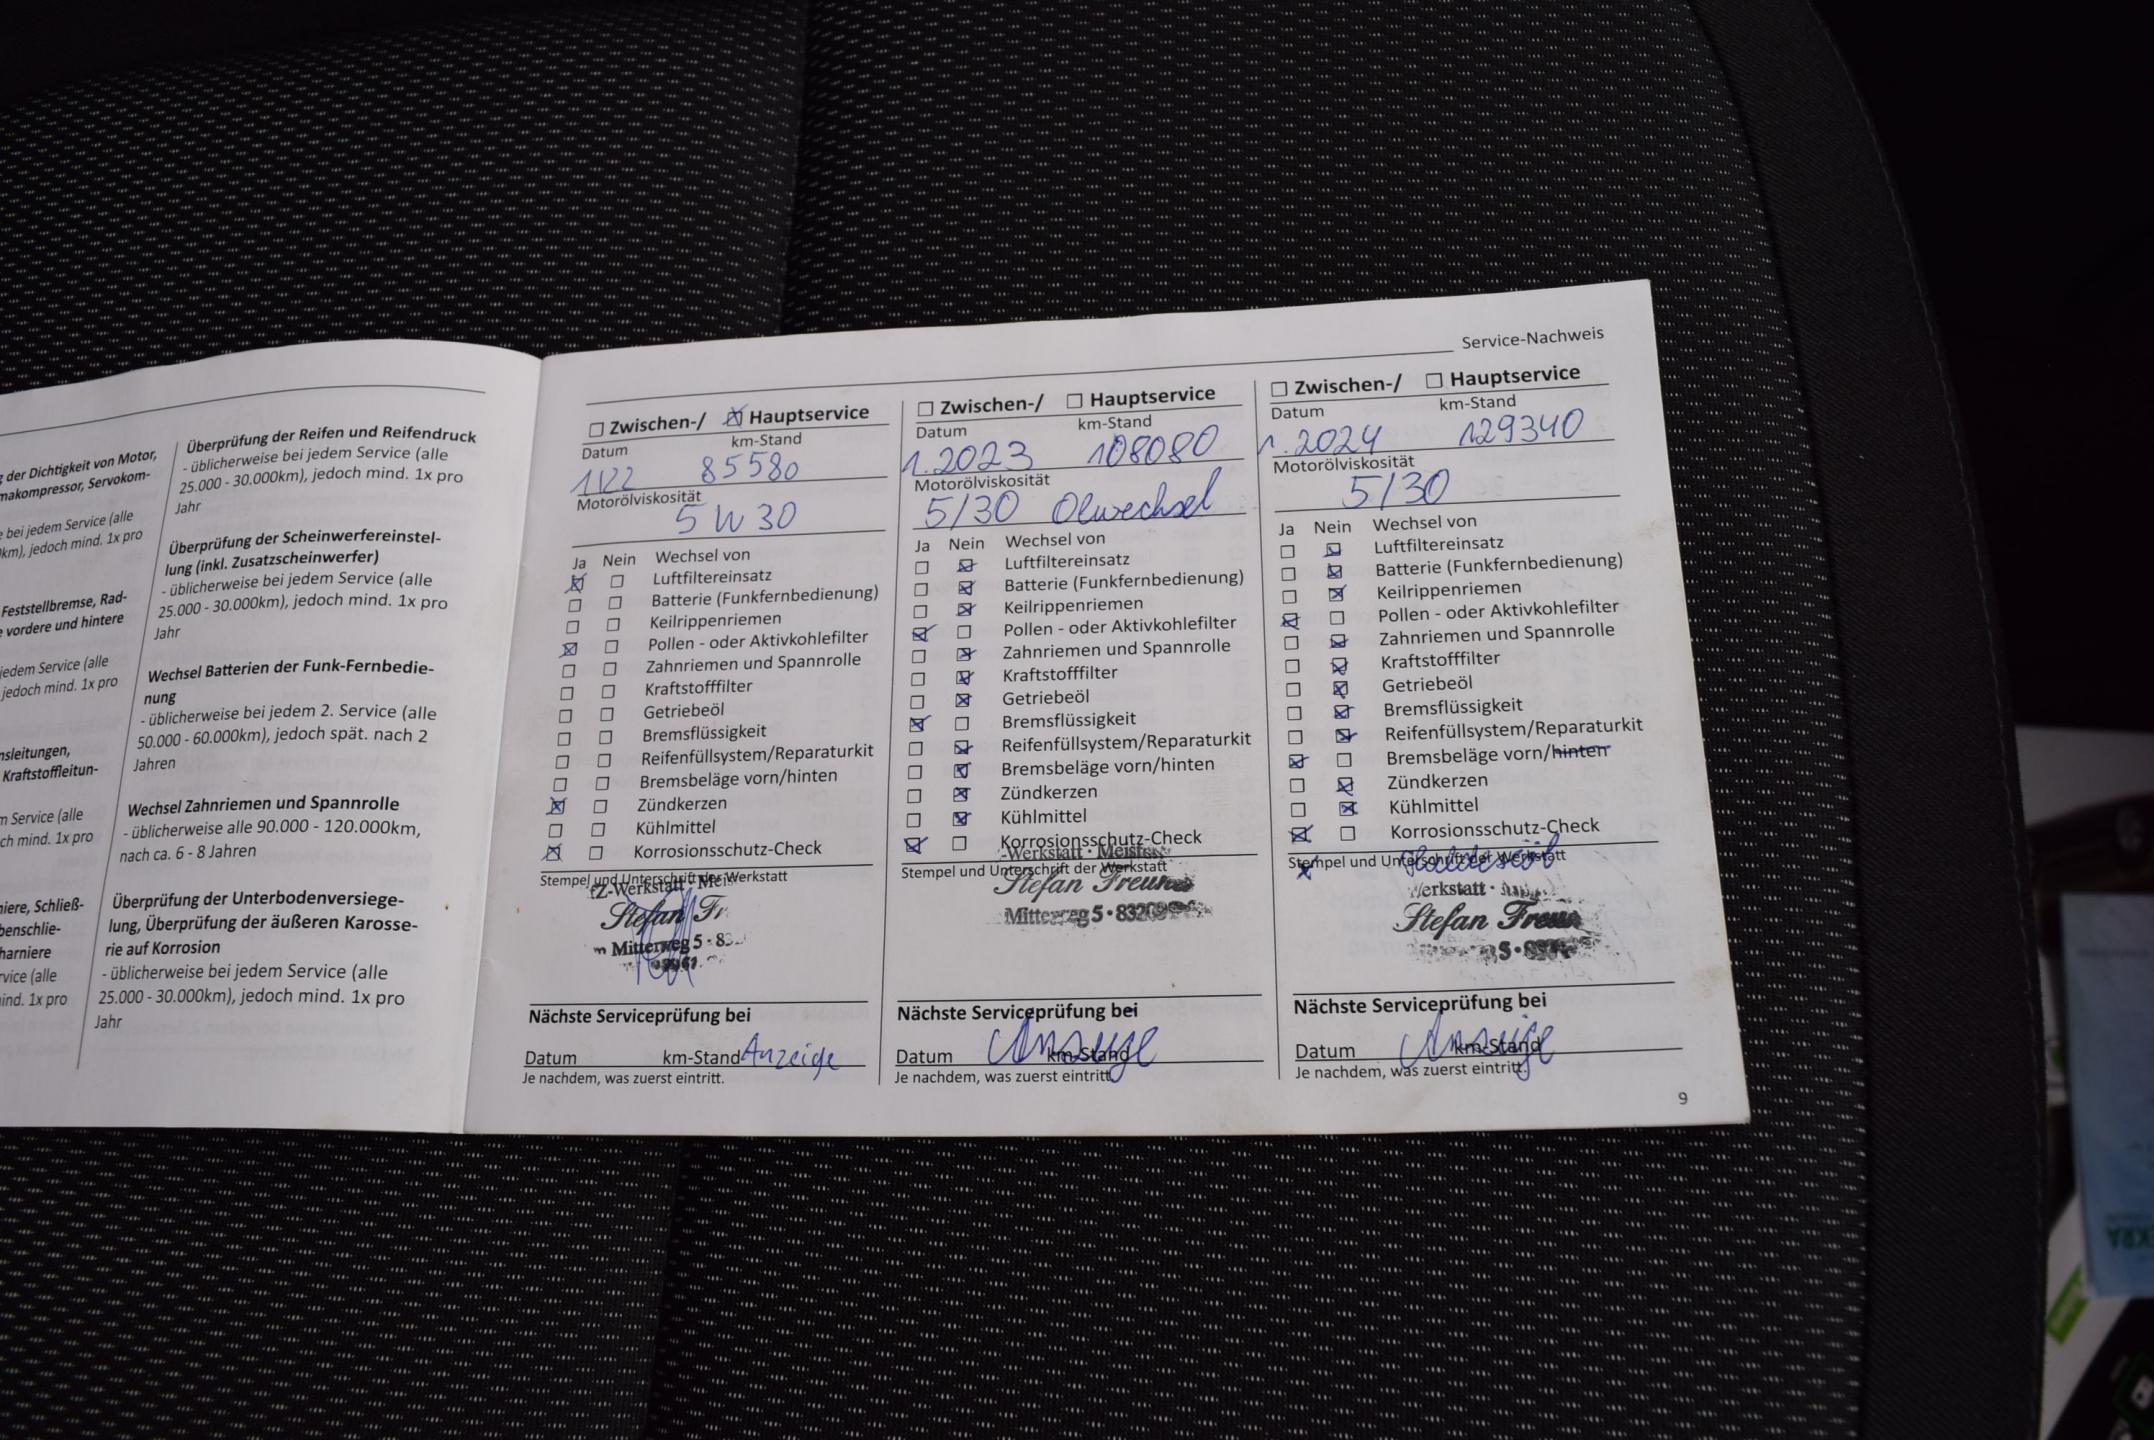 g der Dichtigkeit von Motor,
makompressor, Servokom-
e bei jedem Service (alle
km), jedoch mind. 1x pro
Feststellbremse, Rad-
e vordere und hintere
jedem Service (alle
jedoch mind. 1x pro
nsleitungen,
Kraftstoffleitun-
m Service (alle
ch mind. 1x pro
niere, Schließ-
benschlie-
harniere
rvice (alle
ind. 1x pro
Überprüfung der Reifen und Reifendruck
- üblicherweise bei jedem Service (alle
25.000 - 30.000km), jedoch mind. 1x pro
Jahr
Überprüfung der Scheinwerfereinstel-
lung (inkl. Zusatzscheinwerfer)
- üblicherweise bei jedem Service (alle
25.000 - 30.000km), jedoch mind. 1x pro
Jahr
Wechsel Batterien der Funk-Fernbedie-
nung
- üblicherweise bei jedem 2. Service (alle
50.000 - 60.000km), jedoch spät. nach 2
Jahren
Wechsel Zahnriemen und Spannrolle
- üblicherweise alle 90.000 - 120.000km,
nach ca. 6 - 8 Jahren
Überprüfung der Unterbodenversiege-
lung, Überprüfung der äußeren Karosse-
rie auf Korrosion
- üblicherweise bei jedem Service (alle
25.000 - 30.000km), jedoch mind. 1x pro
Jahr
Service-Nachweis
☐ Zwischen-/ ☒ Hauptservice
Datum km-Stand
1/22 85580
Motorölviskosität
5 W 30
Ja Nein Wechsel von
☒ ☐ Luftfiltereinsatz
☐ ☐ Batterie (Funkfernbedienung)
☐ ☐ Keilrippenriemen
☒ ☐ Pollen - oder Aktivkohlefilter
☐ ☐ Zahnriemen und Spannrolle
☐ ☐ Kraftstofffilter
☐ ☐ Getriebeöl
☐ ☐ Bremsflüssigkeit
☐ ☐ Reifenfüllsystem/Reparaturkit
☐ ☐ Bremsbeläge vorn/hinten
☒ ☐ Zündkerzen
☐ ☐ Kühlmittel
☒ ☐ Korrosionsschutz-Check
Stempel und Unterschrift der Werkstatt
Z-Werkstatt · Meis
Stefan Fr
Mitterweg 5 · 83
Nächste Serviceprüfung bei
Datum km-Stand Anzeige
Je nachdem, was zuerst eintritt.
☐ Zwischen-/ ☐ Hauptservice
Datum km-Stand
1.2023 108080
Motorölviskosität
5/30 Ölwechsel
Ja Nein Wechsel von
☐ ☒ Luftfiltereinsatz
☐ ☒ Batterie (Funkfernbedienung)
☐ ☒ Keilrippenriemen
☒ ☐ Pollen - oder Aktivkohlefilter
☐ ☒ Zahnriemen und Spannrolle
☐ ☒ Kraftstofffilter
☐ ☒ Getriebeöl
☒ ☐ Bremsflüssigkeit
☐ ☒ Reifenfüllsystem/Reparaturkit
☐ ☒ Bremsbeläge vorn/hinten
☐ ☒ Zündkerzen
☐ ☒ Kühlmittel
☒ ☐ Korrosionsschutz-Check
-Werkstatt · Meist
Stempel und Unterschrift der Werkstatt
Stefan Freun
Mitterweg 5 · 8320
Nächste Serviceprüfung bei
Datum km-Stand Anzeige
Je nachdem, was zuerst eintritt.
☐ Zwischen-/ ☐ Hauptservice
Datum km-Stand
1.2024 129340
Motorölviskosität
5/30
Ja Nein Wechsel von
☐ ☒ Luftfiltereinsatz
☐ ☒ Batterie (Funkfernbedienung)
☐ ☒ Keilrippenriemen
☒ ☐ Pollen - oder Aktivkohlefilter
☐ ☒ Zahnriemen und Spannrolle
☐ ☒ Kraftstofffilter
☐ ☒ Getriebeöl
☐ ☒ Bremsflüssigkeit
☐ ☒ Reifenfüllsystem/Reparaturkit
☒ ☐ Bremsbeläge vorn/hinten
☐ ☒ Zündkerzen
☐ ☒ Kühlmittel
☒ ☐ Korrosionsschutz-Check
Stempel und Unterschrift der Werkstatt
Werkstatt ·
Stefan Freun
5 ·
Nächste Serviceprüfung bei
Datum km-Stand Anzeige
Je nachdem, was zuerst eintritt.
9